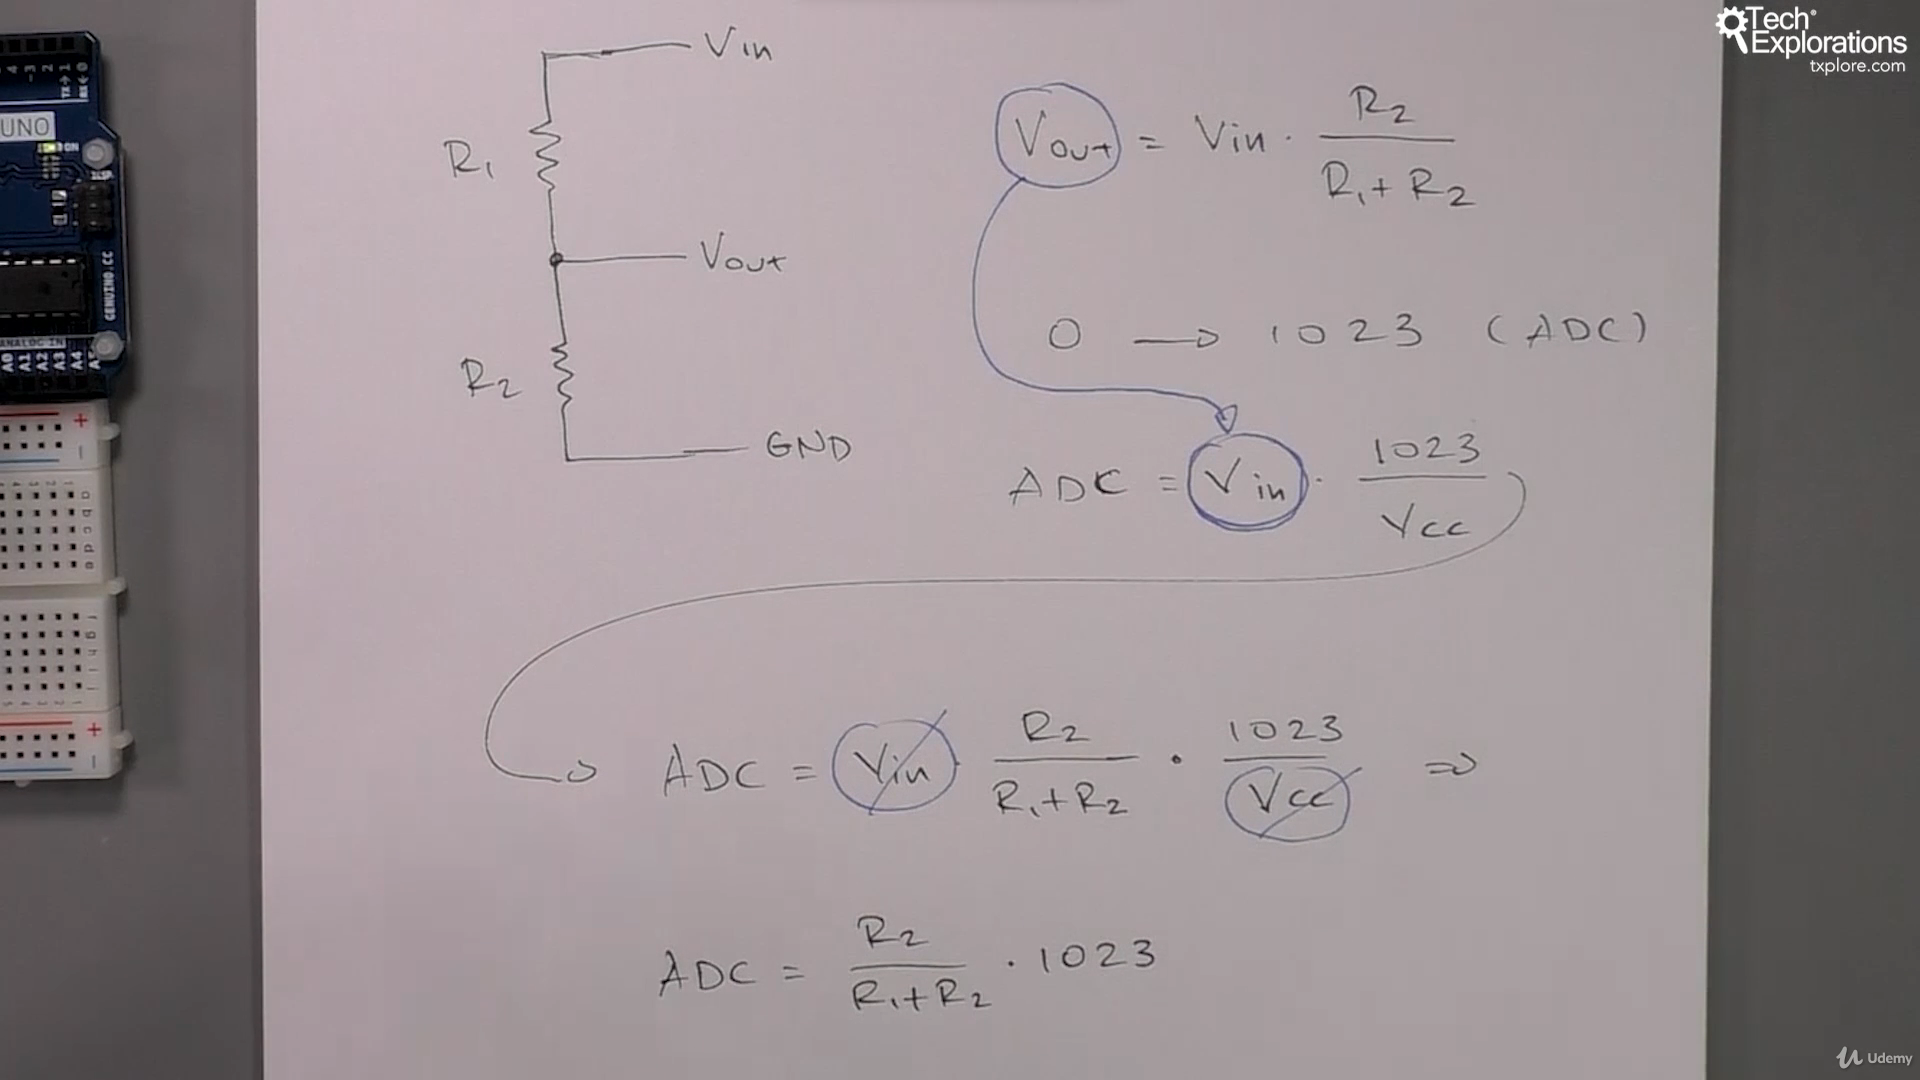 Tech
Explorations
txplore.com
4 ~3 2 TX→1 RX←0
UNO
ON
GENUINO.CC
ANALOG IN
A0 A1 A2 A3 A4
Vin
R1
Vout
R2
GND
Vout = Vin · R2 / R1 + R2
0 → 1023 (ADC)
ADC = Vin · 1023 / Vcc
ADC = Vin · R2 / R1 + R2 · 1023 / Vcc ⇒
ADC = R2 / R1 + R2 · 1023
Udemy